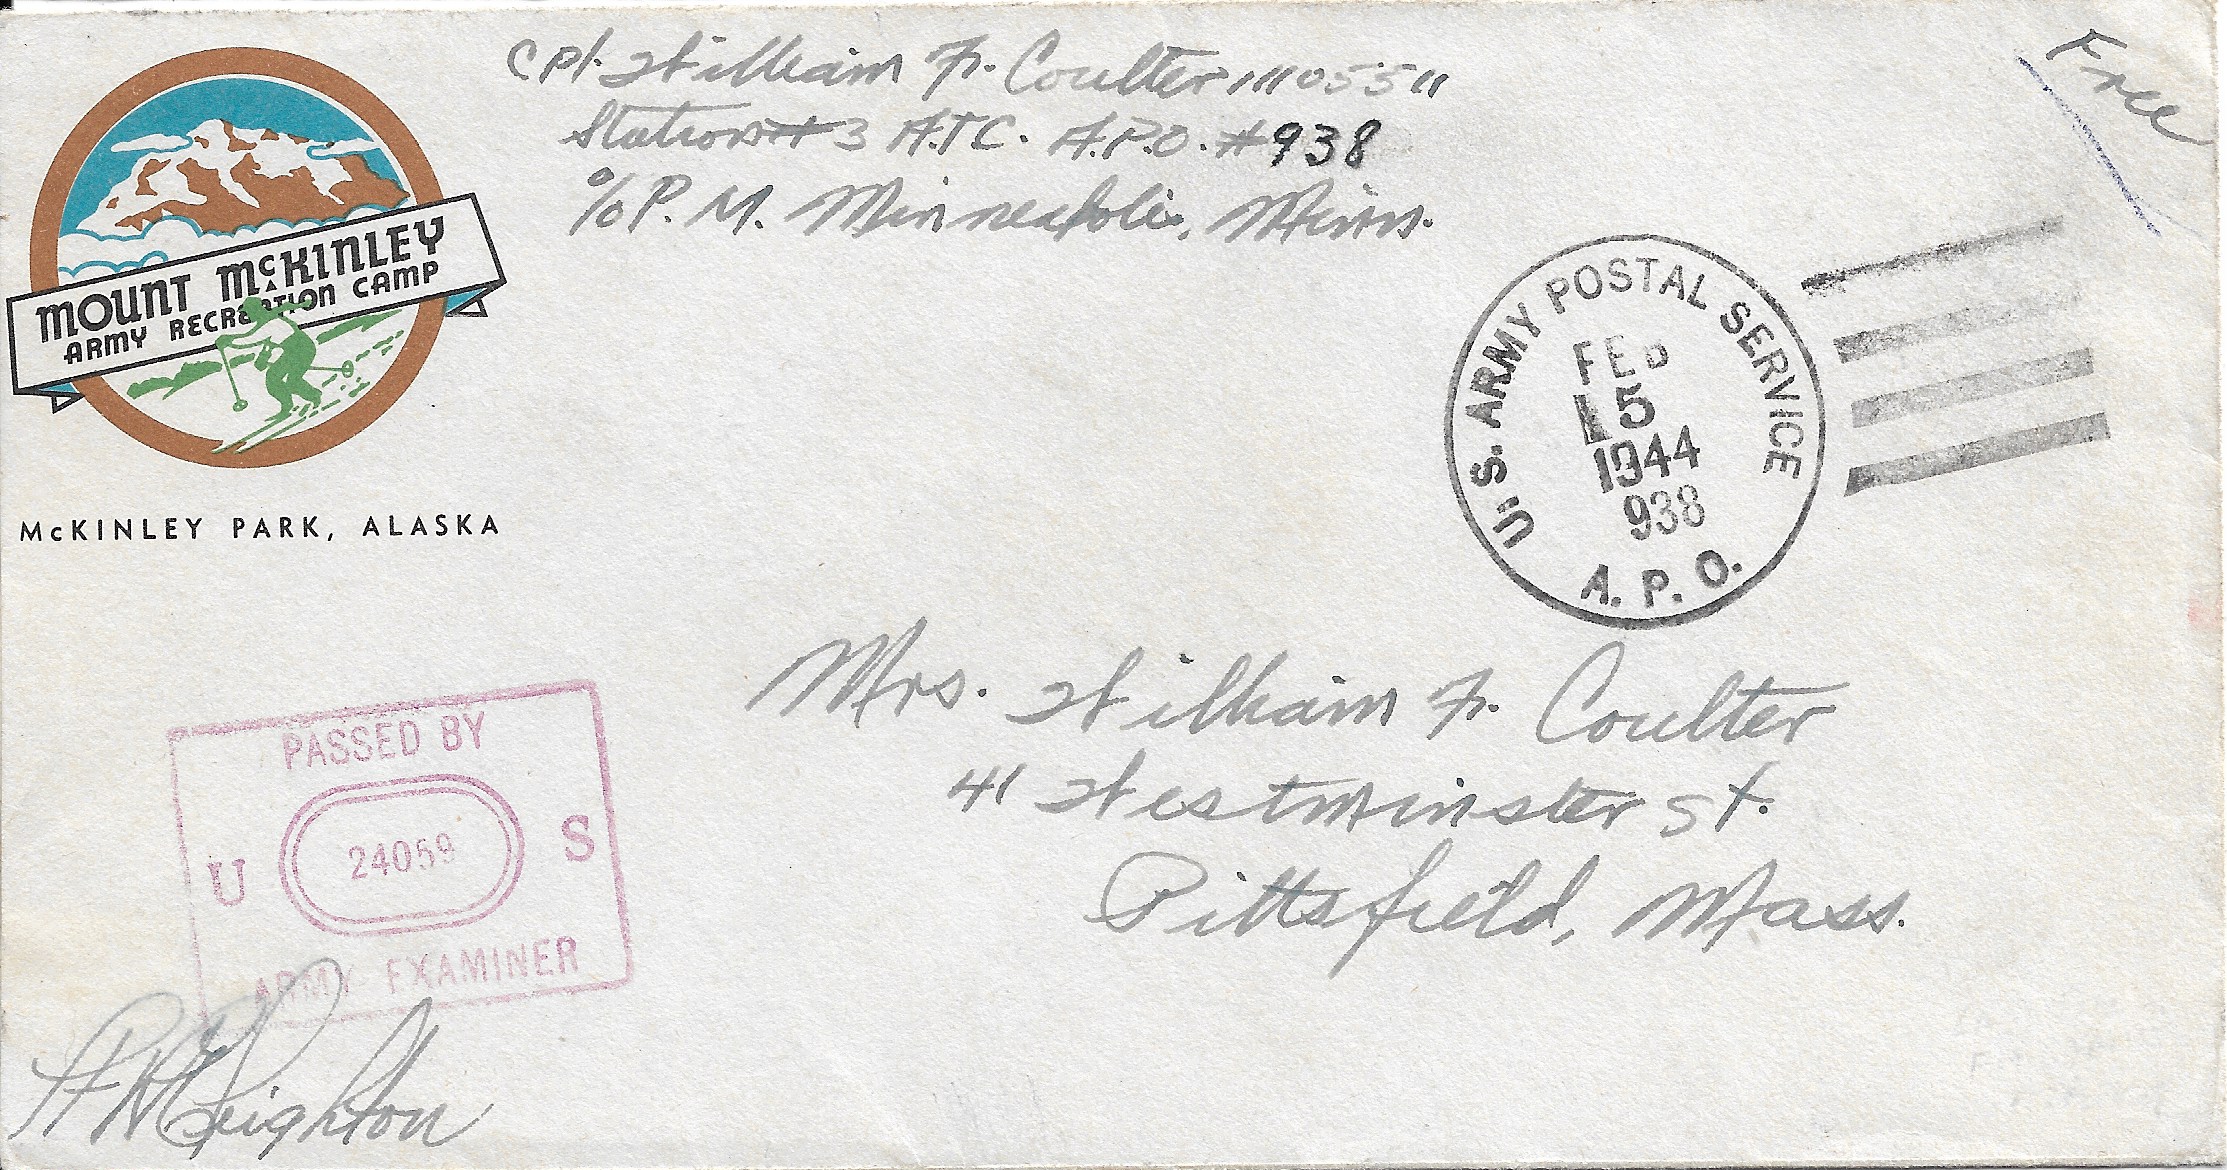 Cpl. William F. Coulter 11105511
Station #3 A.T.C. A.P.O. #938
c/o P. M. Minneapolis, Minn.
Free
MOUNT McKINLEY
ARMY RECREATION CAMP
McKINLEY PARK, ALASKA
U.S. ARMY POSTAL SERVICE
FEB
15
1944
938
A.P.O.
Mrs. William F. Coulter
41 Westminster St.
Pittsfield, Mass.
PASSED BY
U 24059 S
ARMY EXAMINER